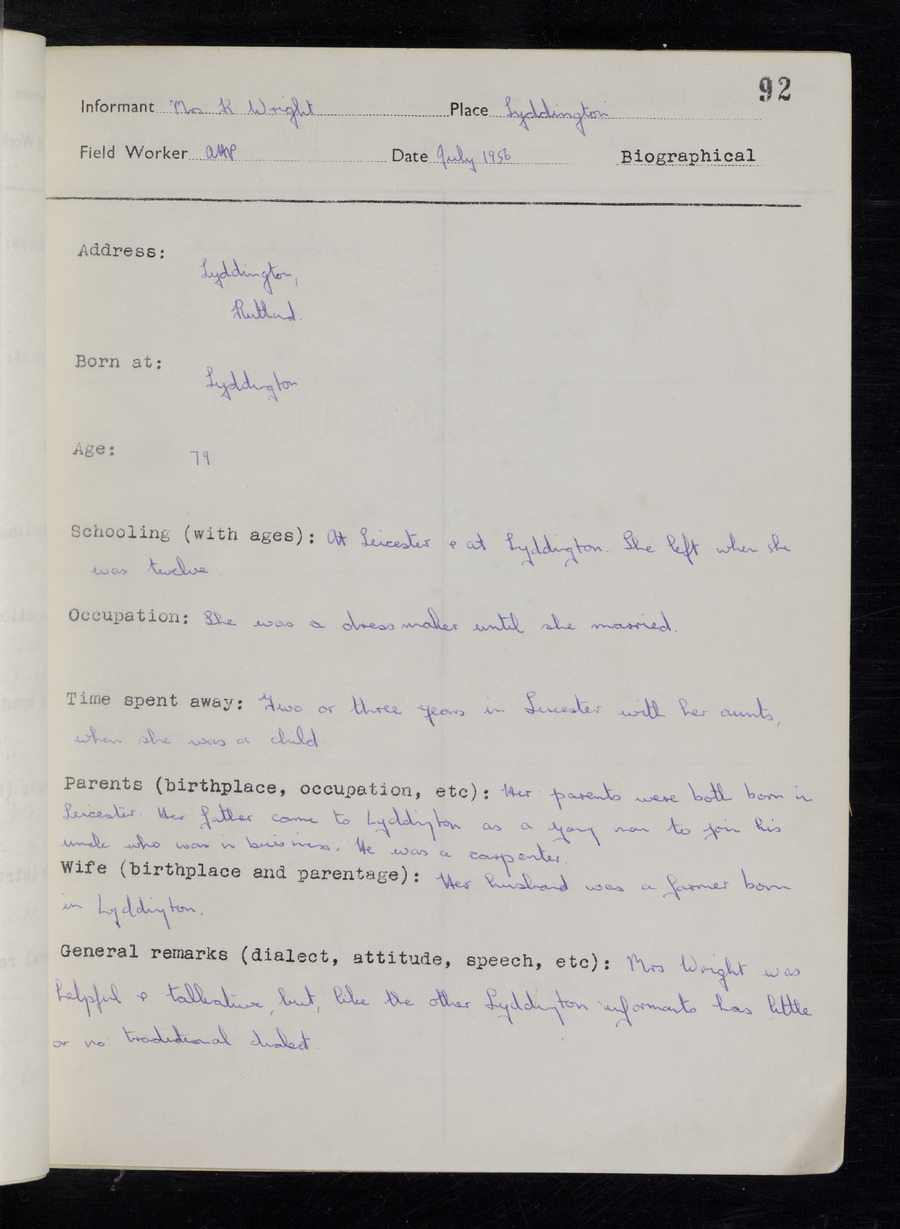 92
Informant Mrs K Wright Place Lyddington
Field Worker AHP Date July 1956 Biographical
Address:
Lyddington,
Rutland.
Born at:
Lyddington
Age: 79
Schooling (with ages): At Leicester & at Lyddington. She left when she
was twelve.
Occupation: She was a dressmaker until she married.
Time spent away: Two or three years in Leicester with her aunts,
when she was a child.
Parents (birthplace, occupation, etc): Her parents were both born in
Leicester. Her father came to Lyddington as a young man to join his
uncle who was in business. He was a carpenter.
Wife (birthplace and parentage): Her husband was a farmer born
in Lyddington.
General remarks (dialect, attitude, speech, etc): Mrs Wright was
helpful & talkative, but, like the other Lyddington informants has little
or no traditional dialect.